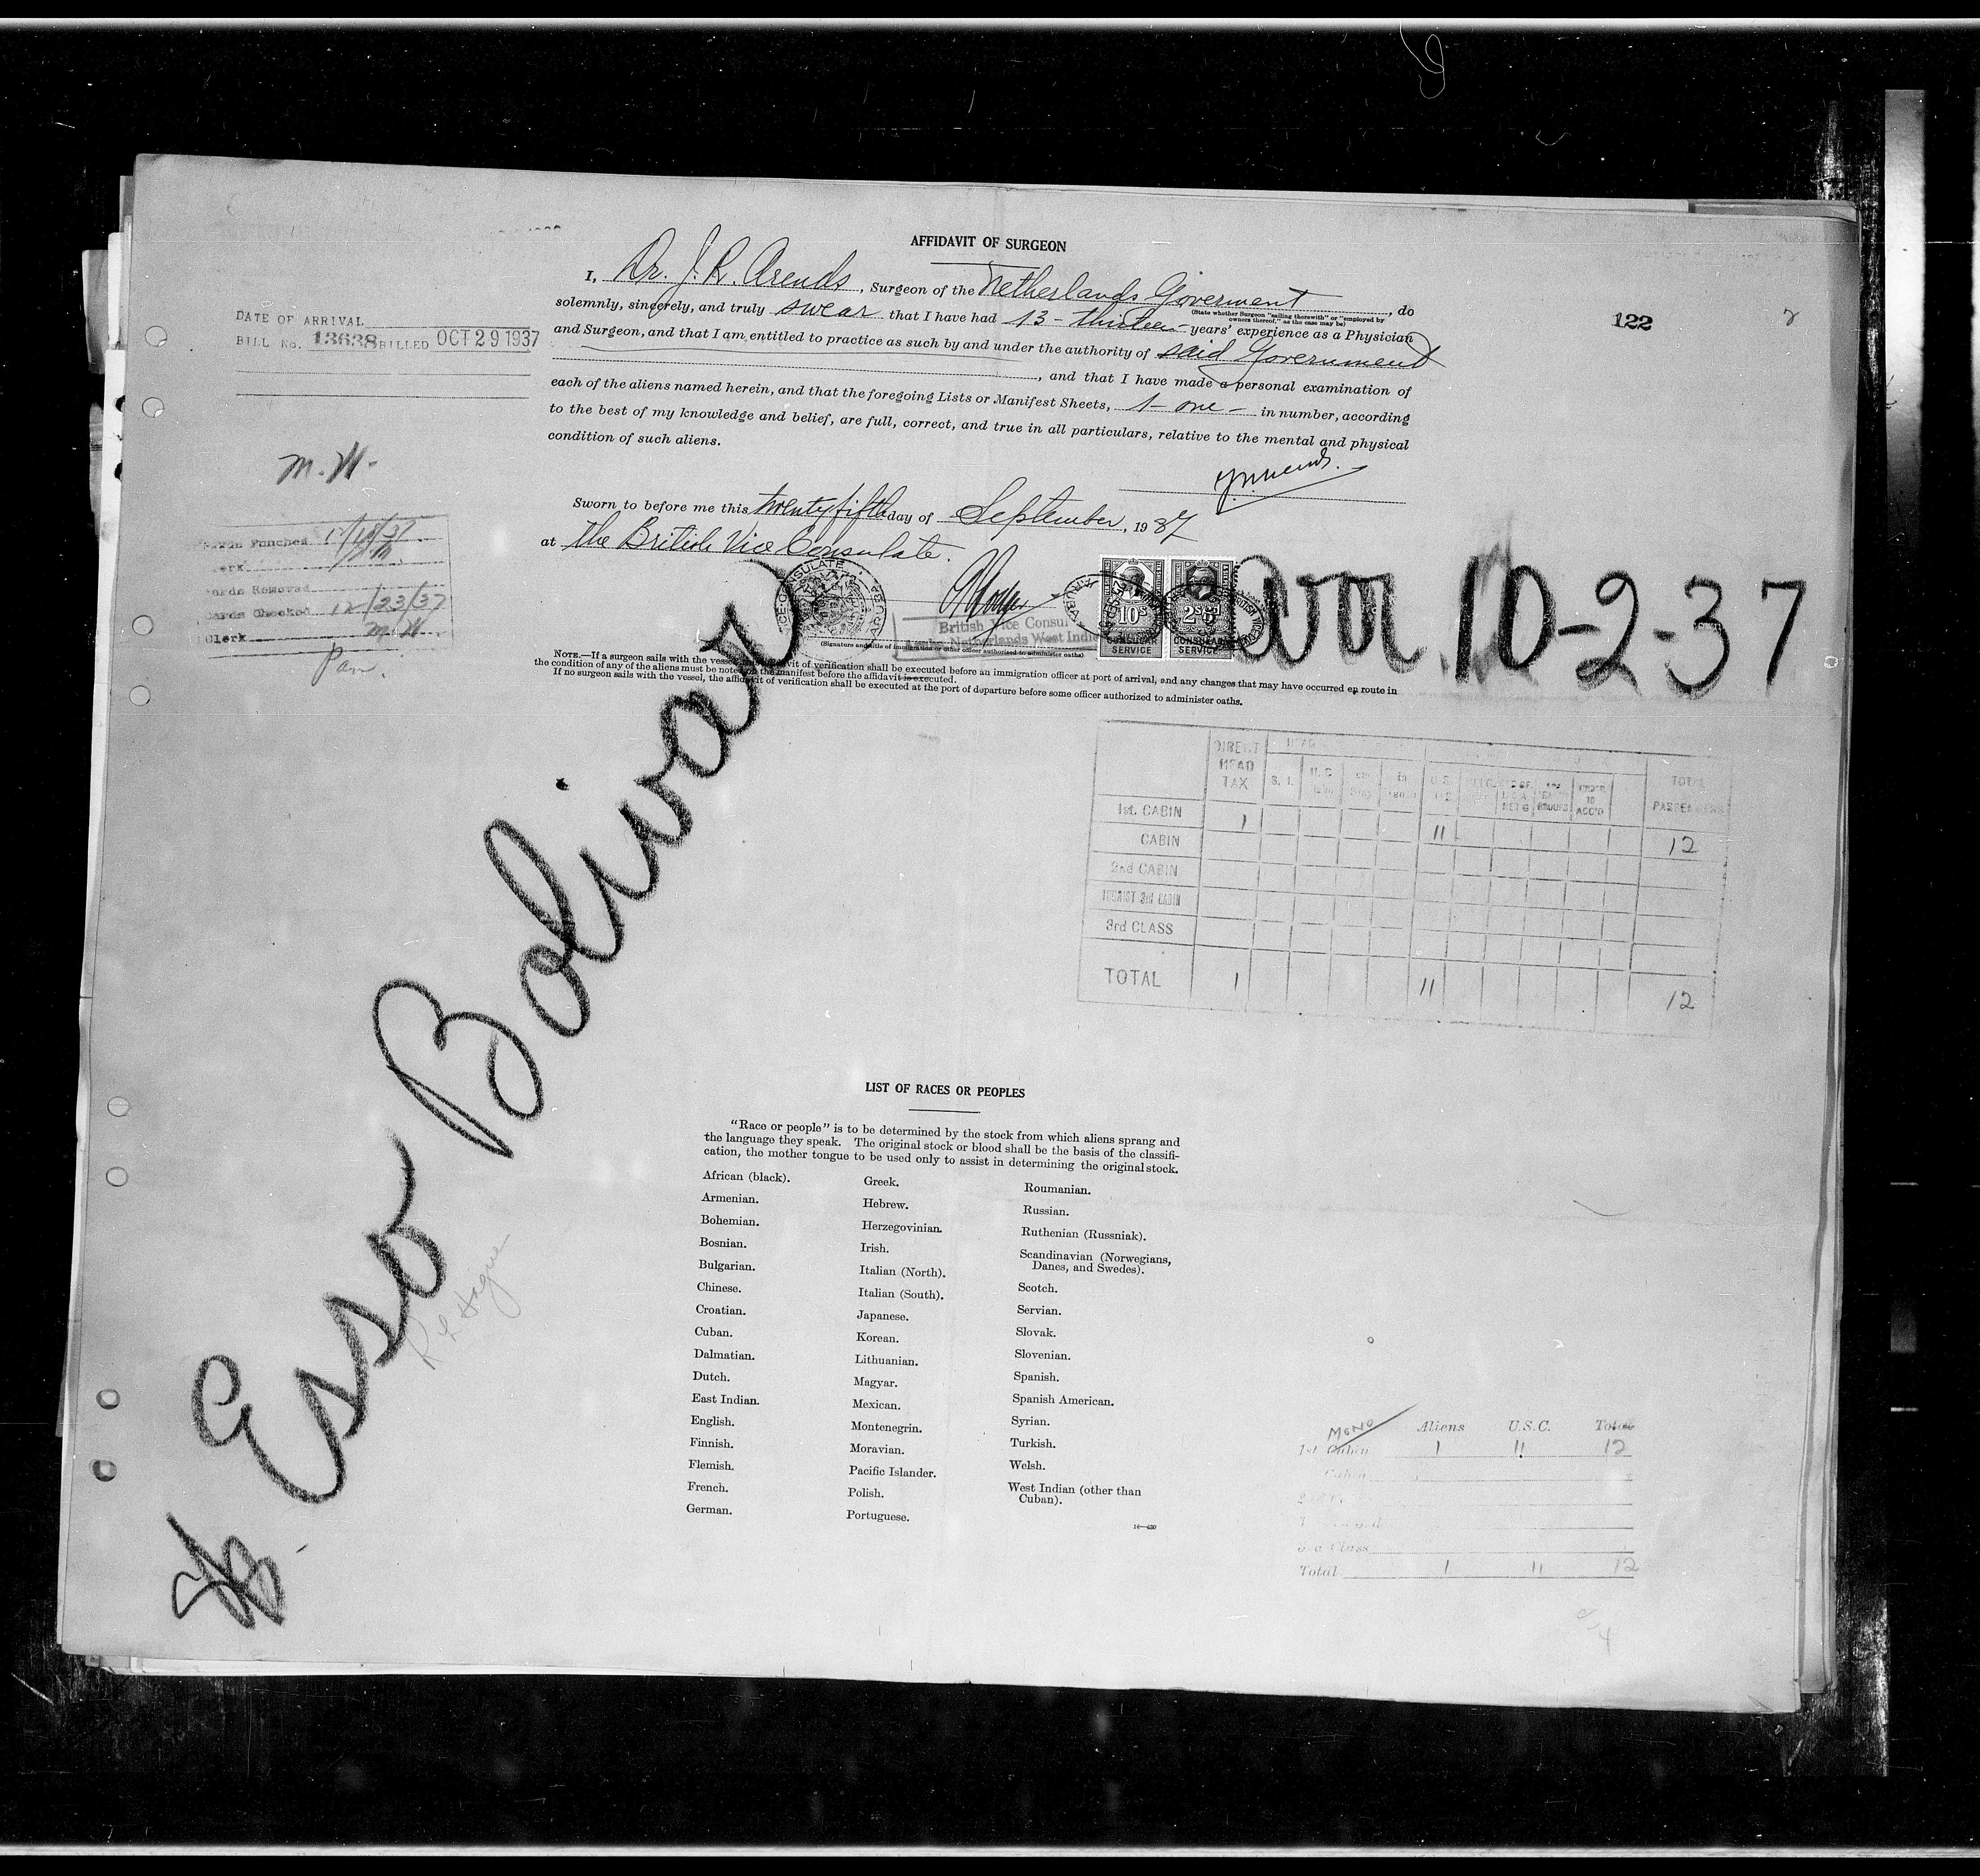 AFFIDAVIT OF SURGEON
I, Dr. J. R. Arends, Surgeon of the Netherlands Goverment, do
(State whether Surgeon "sailing therewith" or "employed by
owners thereof," as the case may be)
solemnly, sincerely, and truly swear that I have had 13 - thirteen - years' experience as a Physician
and Surgeon, and that I am entitled to practice as such by and under the authority of said Government
, and that I have made a personal examination of
each of the aliens named herein, and that the foregoing Lists or Manifest Sheets, 1 - one - in number, according
to the best of my knowledge and belief, are full, correct, and true in all particulars, relative to the mental and physical
condition of such aliens.
Sworn to before me this twenty fifth day of September, 1937
at the British Vice Consulate.
DATE OF ARRIVAL
BILL No. 13638 BILLED OCT 29 1937
122
M. W.
Punched
Removed
Checked 12/23/37
Clerk M W
Pan.
VICE-CONSULATE
ARUBA
British Vice Consul
Netherlands West Indies
(Signature and title of immigration or other officer authorized to administer oaths)
10s
CONSULAR
SERVICE
2s6d
CONSULAR
SERVICE
ARUBA
arr. 10-2-37
NOTE.—If a surgeon sails with the vessel, the affidavit of verification shall be executed before an immigration officer at port of arrival, and any changes that may have occurred en route in
the condition of any of the aliens must be noted on the manifest before the affidavit is executed.
If no surgeon sails with the vessel, the affidavit of verification shall be executed at the port of departure before some officer authorized to administer oaths.
DIRECT HEAD TAX S. I. TOTAL PASSENGERS
1st. CABIN 1 11 12
CABIN
2nd CABIN
TOURIST 3rd CABIN
3rd CLASS
TOTAL 1 11 12
Esso Bolivar
R L Hague
LIST OF RACES OR PEOPLES
"Race or people" is to be determined by the stock from which aliens sprang and
the language they speak. The original stock or blood shall be the basis of the classifi-
cation, the mother tongue to be used only to assist in determining the original stock.
African (black).
Armenian.
Bohemian.
Bosnian.
Bulgarian.
Chinese.
Croatian.
Cuban.
Dalmatian.
Dutch.
East Indian.
English.
Finnish.
Flemish.
French.
German.
Greek.
Hebrew.
Herzegovinian.
Irish.
Italian (North).
Italian (South).
Japanese.
Korean.
Lithuanian.
Magyar.
Mexican.
Montenegrin.
Moravian.
Pacific Islander.
Polish.
Portuguese.
Roumanian.
Russian.
Ruthenian (Russniak).
Scandinavian (Norwegians,
Danes, and Swedes).
Scotch.
Servian.
Slovak.
Slovenian.
Spanish.
Spanish American.
Syrian.
Turkish.
Welsh.
West Indian (other than
Cuban).
14—430
MONO Aliens U.S.C. Total
1st Cabin 1 11 12
Cabin
Class
Total 1 11 12